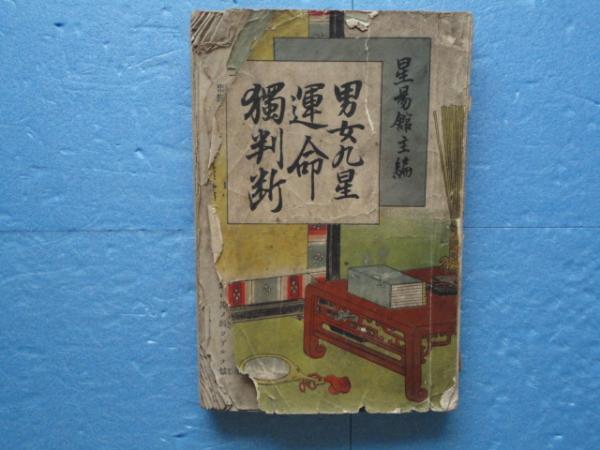 星易館主編
男女九星
運命
獨判断